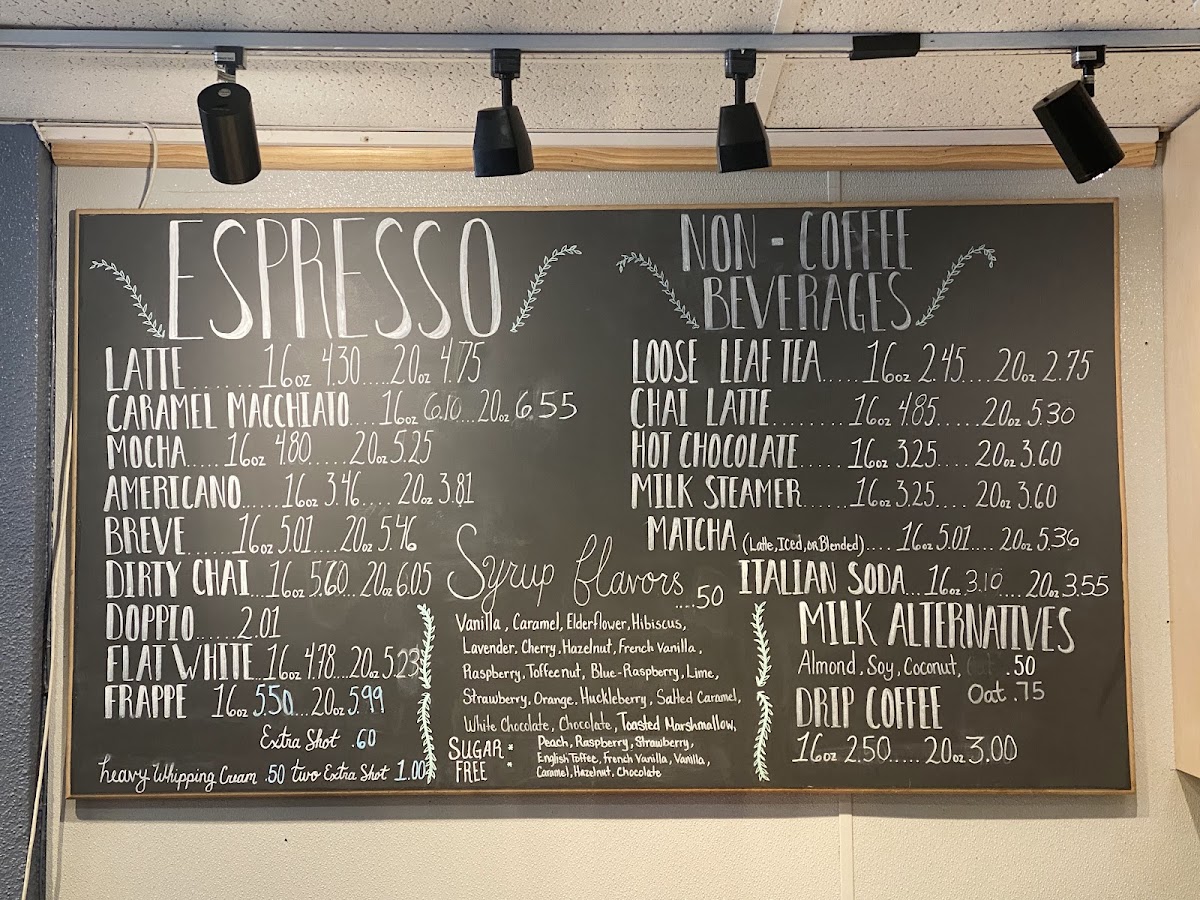 ESPRESSO
LATTE.......16oz 4.30....20oz 4.75
CARAMEL MACCHIATO....16oz 6.10...20oz 6.55
MOCHA.....16oz 4.80.....20oz 5.25
AMERICANO......16oz 3.46.... 20oz 3.81
BREVE.......16oz 5.01....20oz 5.46
DIRTY CHAI...16oz 5.60...20oz 6.05
DOPPIO......2.01
FLAT WHITE..16oz 4.78...20oz 5.23
FRAPPE 16oz 5.50...20oz 5.99
Extra Shot .60
heavy Whipping Cream .50 two Extra Shot 1.00
Syrup flavors
....50
Vanilla, Caramel, Elderflower, Hibiscus,
Lavender, Cherry, Hazelnut, French Vanilla,
Raspberry, Toffeenut, Blue-Raspberry, Lime,
Strawberry, Orange, Huckleberry, Salted Caramel,
White Chocolate, Chocolate, Toasted Marshmallow,
SUGAR FREE :
Peach, Raspberry, Strawberry,
English Toffee, French Vanilla, Vanilla,
Caramel, Hazelnut, Chocolate
NON-COFFEE
BEVERAGES
LOOSE LEAF TEA.....16oz 2.45....20oz 2.75
CHAI LATTE.........16oz 4.85......20oz 5.30
HOT CHOCOLATE......16oz 3.25.... 20oz 3.60
MILK STEAMER......16oz 3.25.... 20oz 3.60
MATCHA (Latte, Iced, or Blended).... 16oz 5.01.... 20oz 5.36
ITALIAN SODA...16oz 3.10 .... 20oz 3.55
MILK ALTERNATIVES
Almond, Soy, Coconut, .50
Oat .75
DRIP COFFEE
16oz 2.50..... 20oz 3.00